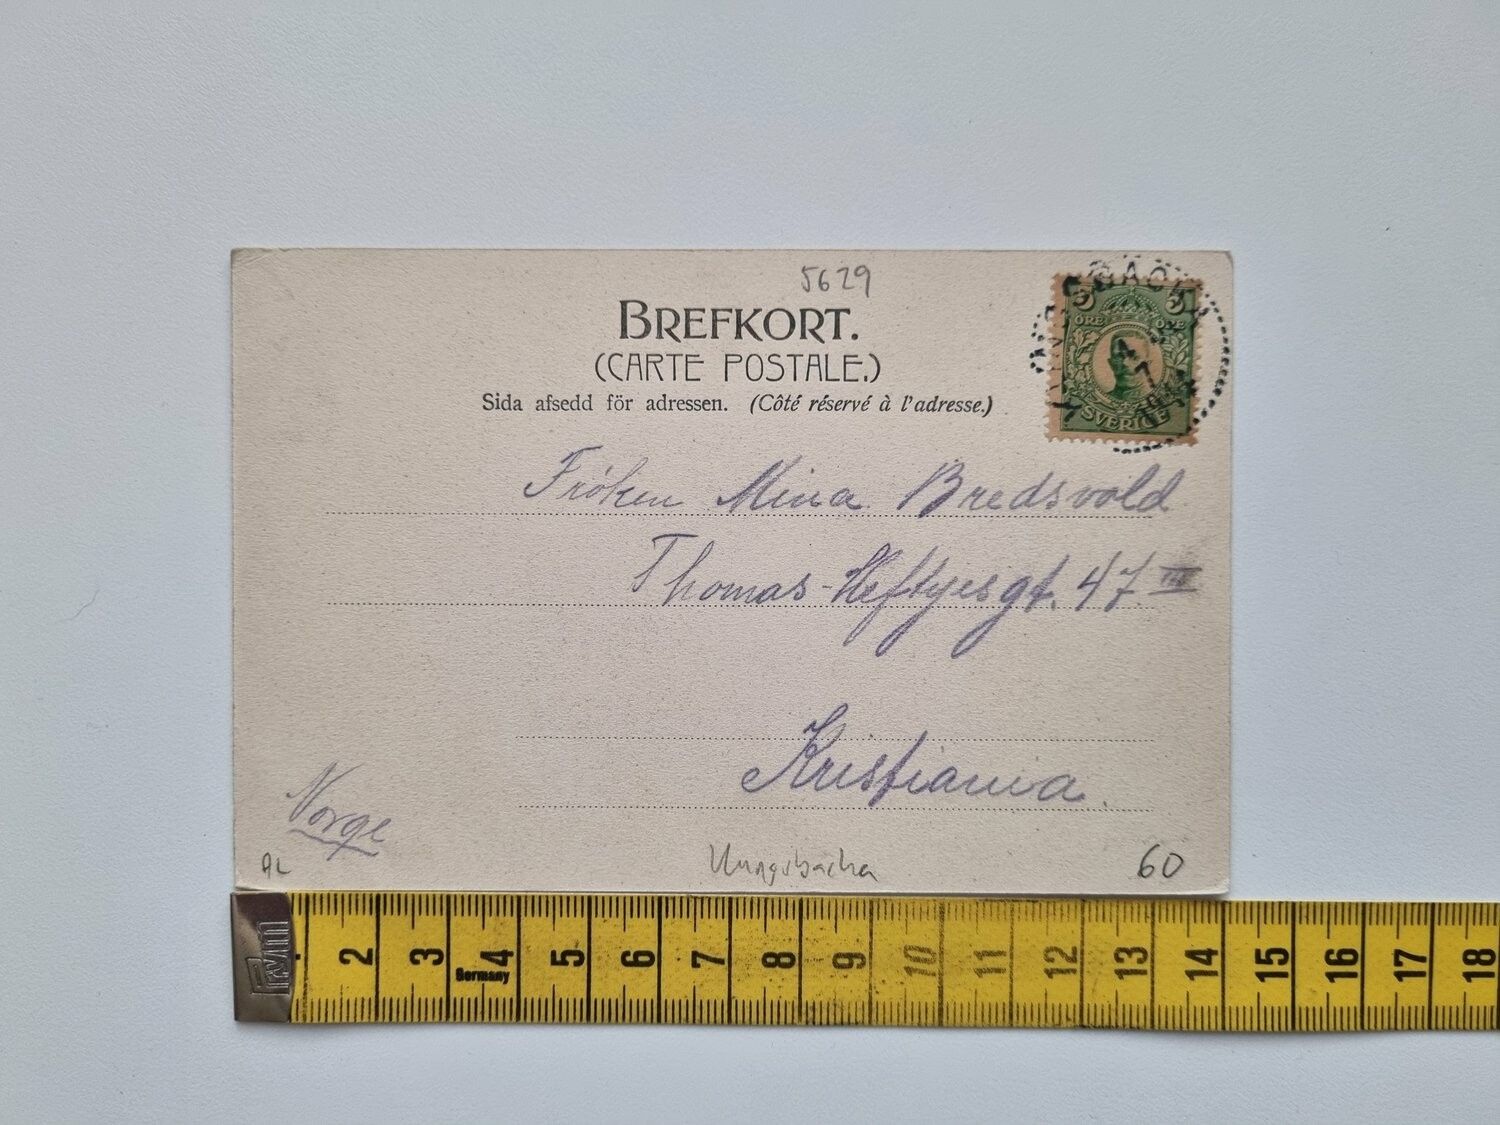 5629
BREFKORT.
(CARTE POSTALE.)
Sida afsedd för adressen. (Côté réservé à l'adresse.)
5 5
ÖRE ÖRE
SVERIGE
KUNGSBACKA
Fröken Mina Bredsvold
Thomas-Heftyesgt. 47 III
Kristiania.
Norge
AL
Kungsbacka
60
PYM
2 3 4 5 6 7 8 9 10 11 12 13 14 15 16 17 18
Germany